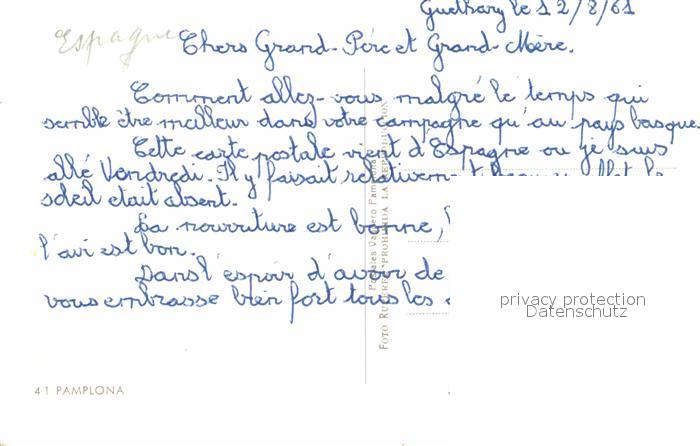 Guethary le 12/8/61
Espagne
Chers Grand-Père et Grand-Mère.
Comment allez-vous malgré le temps qui
semble être meilleur dans votre campagne qu'au pays basque.
Cette carte postale vient d'Espagne ou je suis
allé Vendredi. Il y faisait
soleil etait absent.
La nourriture est bonne,
l'avi est bon.
Dans l'espoir d'avoir de
vous embrasse bien fort tous les
41 PAMPLONA
Postales Vaquero Pamplona
FOTO PROHIBIDA LA REPRODUCCION
privacy protection
Datenschutz